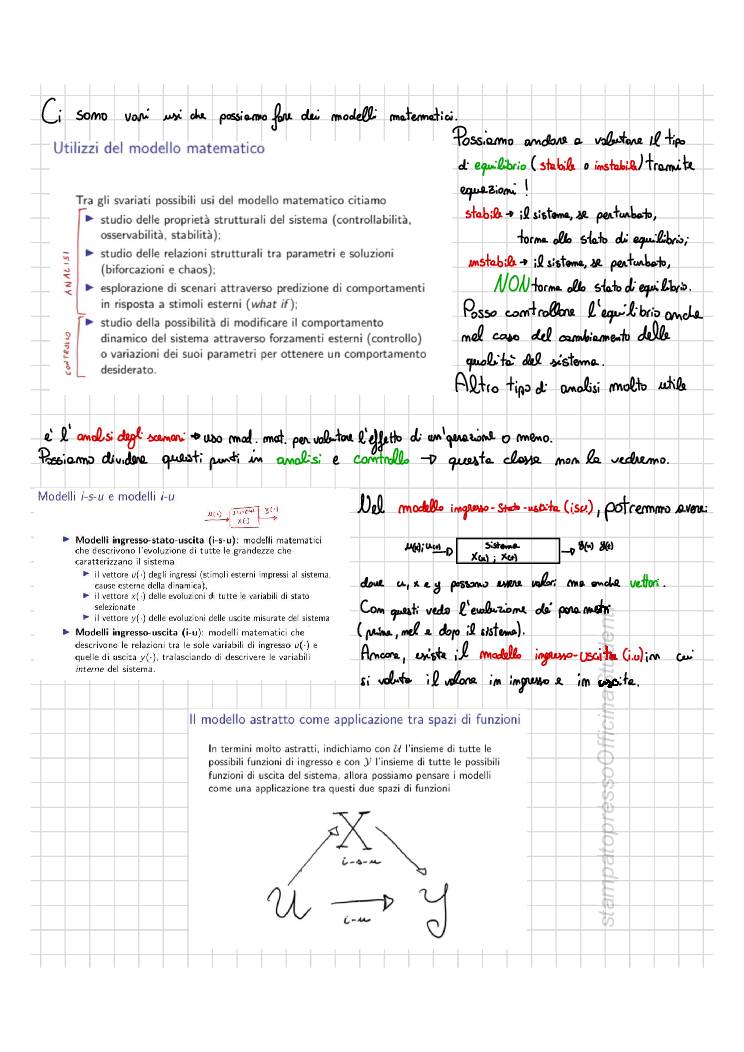 Ci sono vari usi che possiamo fare dei modelli matematici.
Utilizzi del modello matematico
Tra gli svariati possibili usi del modello matematico citiamo
ANALISI
▶ studio delle proprietà strutturali del sistema (controllabilità,
osservabilità, stabilità);
▶ studio delle relazioni strutturali tra parametri e soluzioni
(biforcazioni e chaos);
▶ esplorazione di scenari attraverso predizione di comportamenti
in risposta a stimoli esterni (what if);
CONTROLLO
▶ studio della possibilità di modificare il comportamento
dinamico del sistema attraverso forzamenti esterni (controllo)
o variazioni dei suoi parametri per ottenere un comportamento
desiderato.
Possiamo andare a valutare il tipo
di equilibrio (stabile o instabile) tramite
equazioni!
stabile → il sistema, se perturbato,
torna allo stato di equilibrio;
instabile → il sistema, se perturbato,
NON torna allo stato di equilibrio.
Posso controllare l'equilibrio anche
nel caso del cambiamento delle
qualità del sistema.
Altro tipo di analisi molto utile
è l'analisi degli scenari → uso mod. mat. per valutare l'effetto di un'operazione o meno.
Possiamo dividere questi punti in analisi e controllo → questa classe non la vedremo.
Modelli i-s-u e modelli i-u
u(·) sistema y(·)
x(·)
▶ Modelli ingresso-stato-uscita (i-s-u): modelli matematici
che descrivono l'evoluzione di tutte le grandezze che
caratterizzano il sistema
▶ il vettore u(·) degli ingressi (stimoli esterni impressi al sistema,
cause esterne della dinamica),
▶ il vettore x(·) delle evoluzioni di tutte le variabili di stato
selezionate
▶ il vettore y(·) delle evoluzioni delle uscite misurate del sistema
▶ Modelli ingresso-uscita (i-u): modelli matematici che
descrivono le relazioni tra le sole variabili di ingresso u(·) e
quelle di uscita y(·), tralasciando di descrivere le variabili
interne del sistema.
Nel modello ingresso-stato-uscita (isu), potremmo avere:
Sistema
dove u, x e y possono essere valori ma anche vettori.
Con questi vedo l'evoluzione dei parametri
(prima, nel e dopo il sistema).
Ancora, esiste il modello ingresso-uscita (i.u) in cui
si valuta il valore in ingresso e in uscita.
Il modello astratto come applicazione tra spazi di funzioni
In termini molto astratti, indichiamo con 𝒰 l'insieme di tutte le
possibili funzioni di ingresso e con 𝒴 l'insieme di tutte le possibili
funzioni di uscita del sistema, allora possiamo pensare i modelli
come una applicazione tra questi due spazi di funzioni
X
i-s-u
U → Y
i-u
stampatopressoOfficinaStudenti